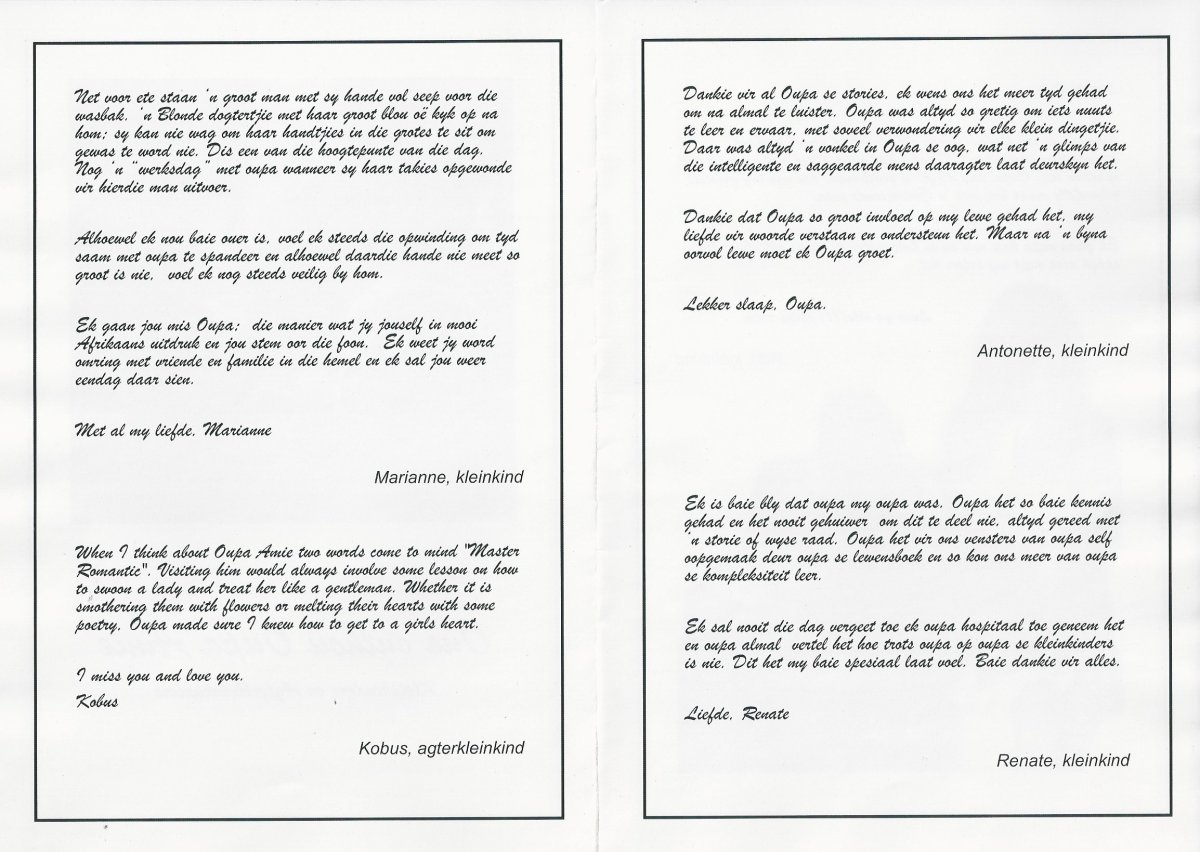 Net voor ete staan 'n groot man met sy hande vol seep voor die
wasbak. 'n Blonde dogtertjie met haar groot blou oë kyk op na
hom; sy kan nie wag om haar handtjies in die grotes te sit om
gewas te word nie. Dis een van die hoogtepunte van die dag.
Nog 'n "werksdag" met oupa wanneer sy haar takies opgewonde
vir hierdie man uitvoer.
Alhoewel ek nou baie ouer is, voel ek steeds die opwinding om tyd
saam met oupa te spandeer en alhoewel daardie hande nie meet so
groot is nie, voel ek nog steeds veilig by hom.
Ek gaan jou mis Oupa; die manier wat jy jouself in mooi
Afrikaans uitdruk en jou stem oor die foon. Ek weet jy word
omring met vriende en familie in die hemel en ek sal jou weer
eendag daar sien.
Met al my liefde, Marianne
Marianne, kleinkind
When I think about Oupa Amie two words come to mind "Master
Romantic". Visiting him would always involve some lesson on how
to swoon a lady and treat her like a gentleman. Whether it is
smothering them with flowers or melting their hearts with some
poetry, Oupa made sure I knew how to get to a girls heart.
I miss you and love you.
Kobus
Kobus, agterkleinkind
Dankie vir al Oupa se stories, ek wens ons het meer tyd gehad
om na almal te luister. Oupa was altyd so gretig om iets nuuts
te leer en ervaar, met soveel verwondering vir elke klein dingetjie.
Daar was altyd 'n vonkel in Oupa se oog, wat net 'n glimps van
die intelligente en saggeaarde mens daaragter laat deurskyn het.
Dankie dat Oupa so groot invloed op my lewe gehad het, my
liefde vir woorde verstaan en ondersteun het. Maar na 'n byna
oorvol lewe moet ek Oupa groet.
Lekker slaap, Oupa.
Antonette, kleinkind
Ek is baie bly dat oupa my oupa was. Oupa het so baie kennis
gehad en het nooit gehuiwer om dit te deel nie, altyd gereed met
'n storie of wyse raad. Oupa het vir ons vensters van oupa self
oopgemaak deur oupa se lewensboek en so kon ons meer van oupa
se kompleksiteit leer.
Ek sal nooit die dag vergeet toe ek oupa hospitaal toe geneem het
en oupa almal vertel het hoe trots oupa op oupa se kleinkinders
is nie. Dit het my baie spesiaal laat voel. Baie dankie vir alles.
Liefde, Renate
Renate, kleinkind